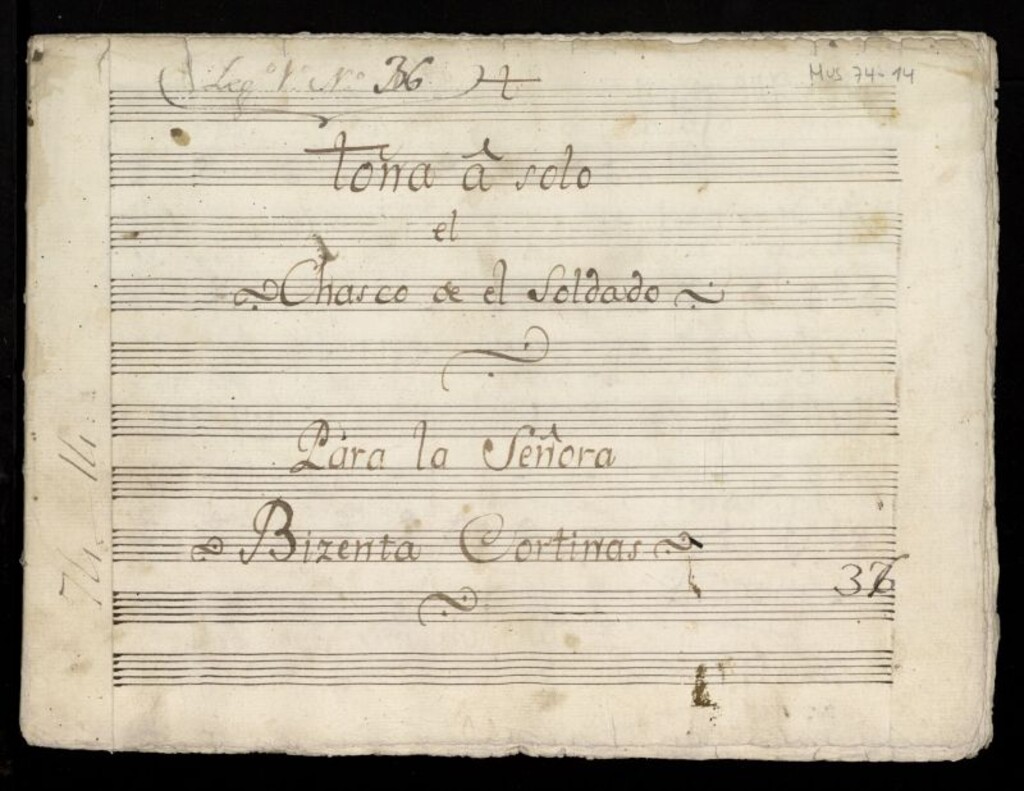 Leg.º 1.º N.º 36
Mus 74-14
tona â solo
el
Chasco de el Soldado
Para la Señora
Bizenta Cortinas
36
74.14.